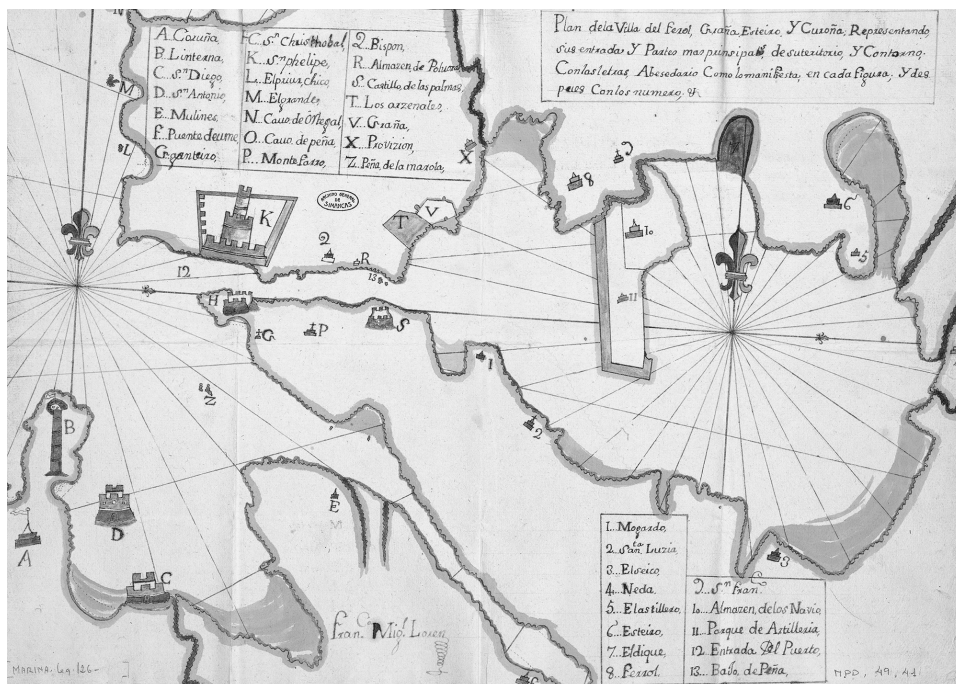 Plan dela Villa del Ferol, Graña, Esteiro, Y Curoña, Representando
sus entrada Y Partes mas prinsipals desuteritorio, Y Contorno.
Conlasletras Abesedario Como lomanifiesta, en cada figura, Y des
pues Con los numero, &
A. Coruña,
B. Linterna,
C. Sn. Diego,
D. Sn. Antonio,
E. Mulines,
F. Puente deume,
G. ganteiro,
H. C. Sn. Christhobal,
K. Sn. phelipe,
L. Elpiur, chico,
M. Elgrande,
N. Cauo de Ortegal,
O. Cauo de peña,
P. Monte farro,
Q. Bispon,
R. Almazen, de Poluora
S. Castillo, de las palmas,
T. Los arzenales,
V. Graña,
X. Provizion,
Z. Peña, de la marola,
M
L
K
T
V
X
9
8
10
6
5
2
R
13
12
H
11
G
P
S
1
Z
2
B
E
D
A
C
3
G
ARCHIVO GENERAL
DE
SIMANCAS
1.. Mogardo,
2.. Santa. Luzia
3.. Elseico,
4.. Neda,
5.. Elastillero,
6.. Esteiro,
7.. Eldique,
8.. Ferrol,
9.. Sn. franco.
10.. Almazen, de los Navio,
11.. Parque de Artilleria,
12. Entrada Del Puerto,
13.. Baijo, de Peña,
franco. Migl. Loren,
[MARINA. Lg. 126- ]
MPD, 49, 41